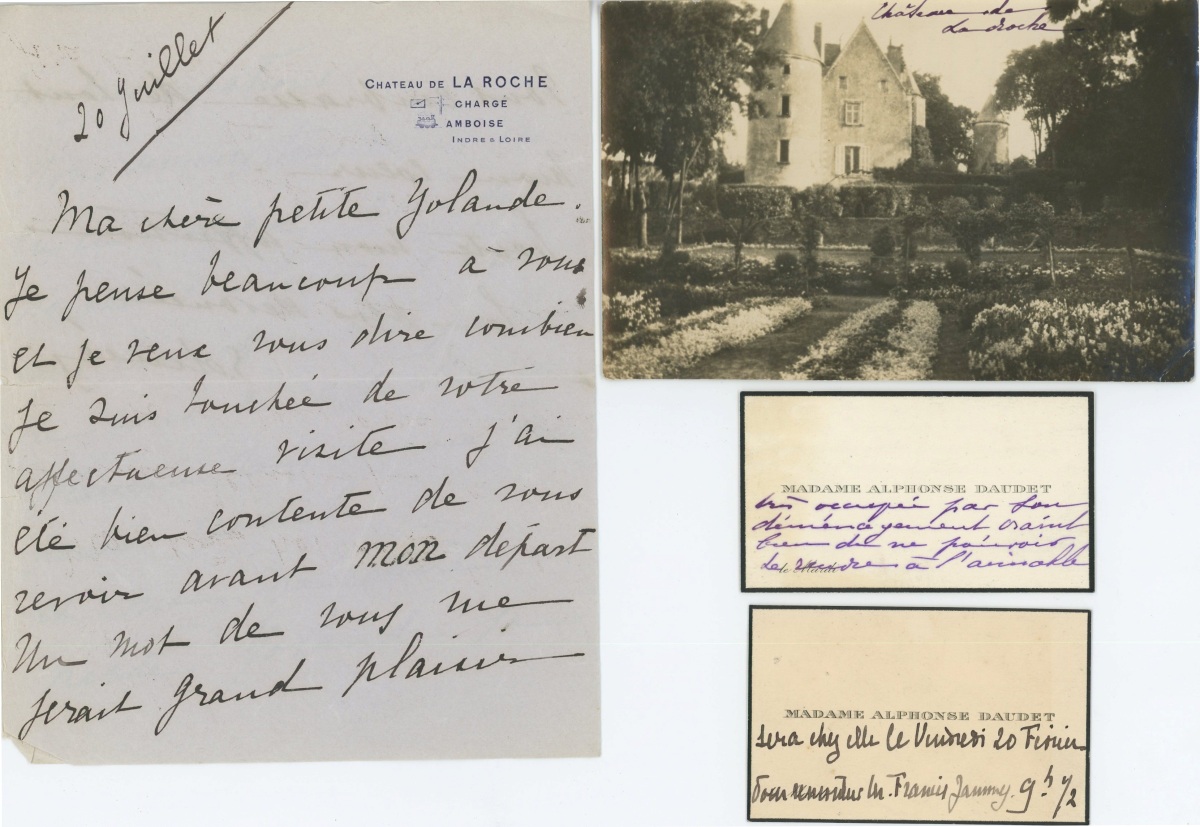 20 Juillet
CHATEAU DE LA ROCHE
CHARGÉ
AMBOISE
INDRE & LOIRE
Ma chère petite Yolande.
Je pense beaucoup à vous
et je veux vous dire combien
je suis touchée de votre
affectueuse visite j'ai
été bien contente de vous
revoir avant mon départ
Un mot de vous me
ferait grand plaisir
Château de
La Roche
MADAME ALPHONSE DAUDET
très occupée par son
déménagement craint
bien de ne pouvoir
se rendre à l'aimable
MADAME ALPHONSE DAUDET
sera chez elle le Vendredi 20 Février
Pour rencontrer Mr. Francis Jammes. 9h 1/2